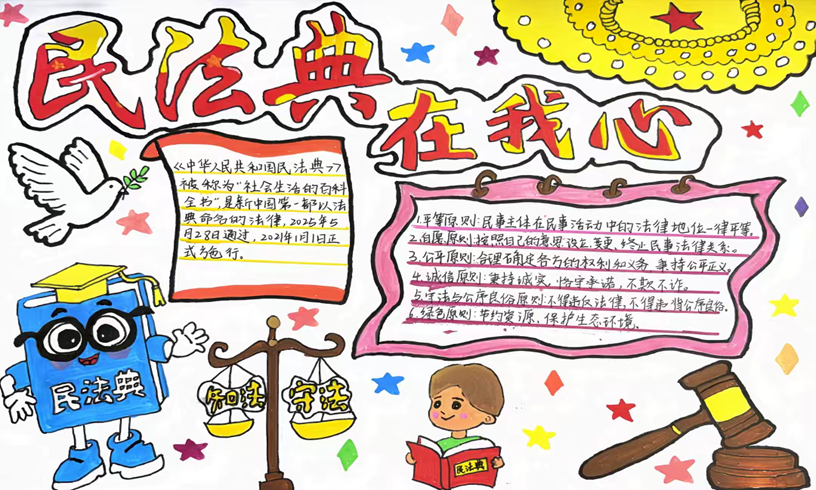 民法典
在我心
《中华人民共和国民法典》
被称为“社会生活的百科
全书”,是新中国第一部以法
典命名的法律,2025年5
月28日通过,2021年1月1日正
式施行。
1.平等原则:民事主体在民事活动中的法律地位一律平等。
2.自愿原则:按照自己的意思设立、变更、终止民事法律关系。
3.公平原则:合理确定各方的权利和义务,秉持公平正义。
4.诚信原则:秉持诚实,恪守承诺,不欺不诈。
5.守法与公序良俗原则:不得违反法律,不得违背公序良俗。
6.绿色原则:节约资源,保护生态环境。
民法典
知法
守法
民法典